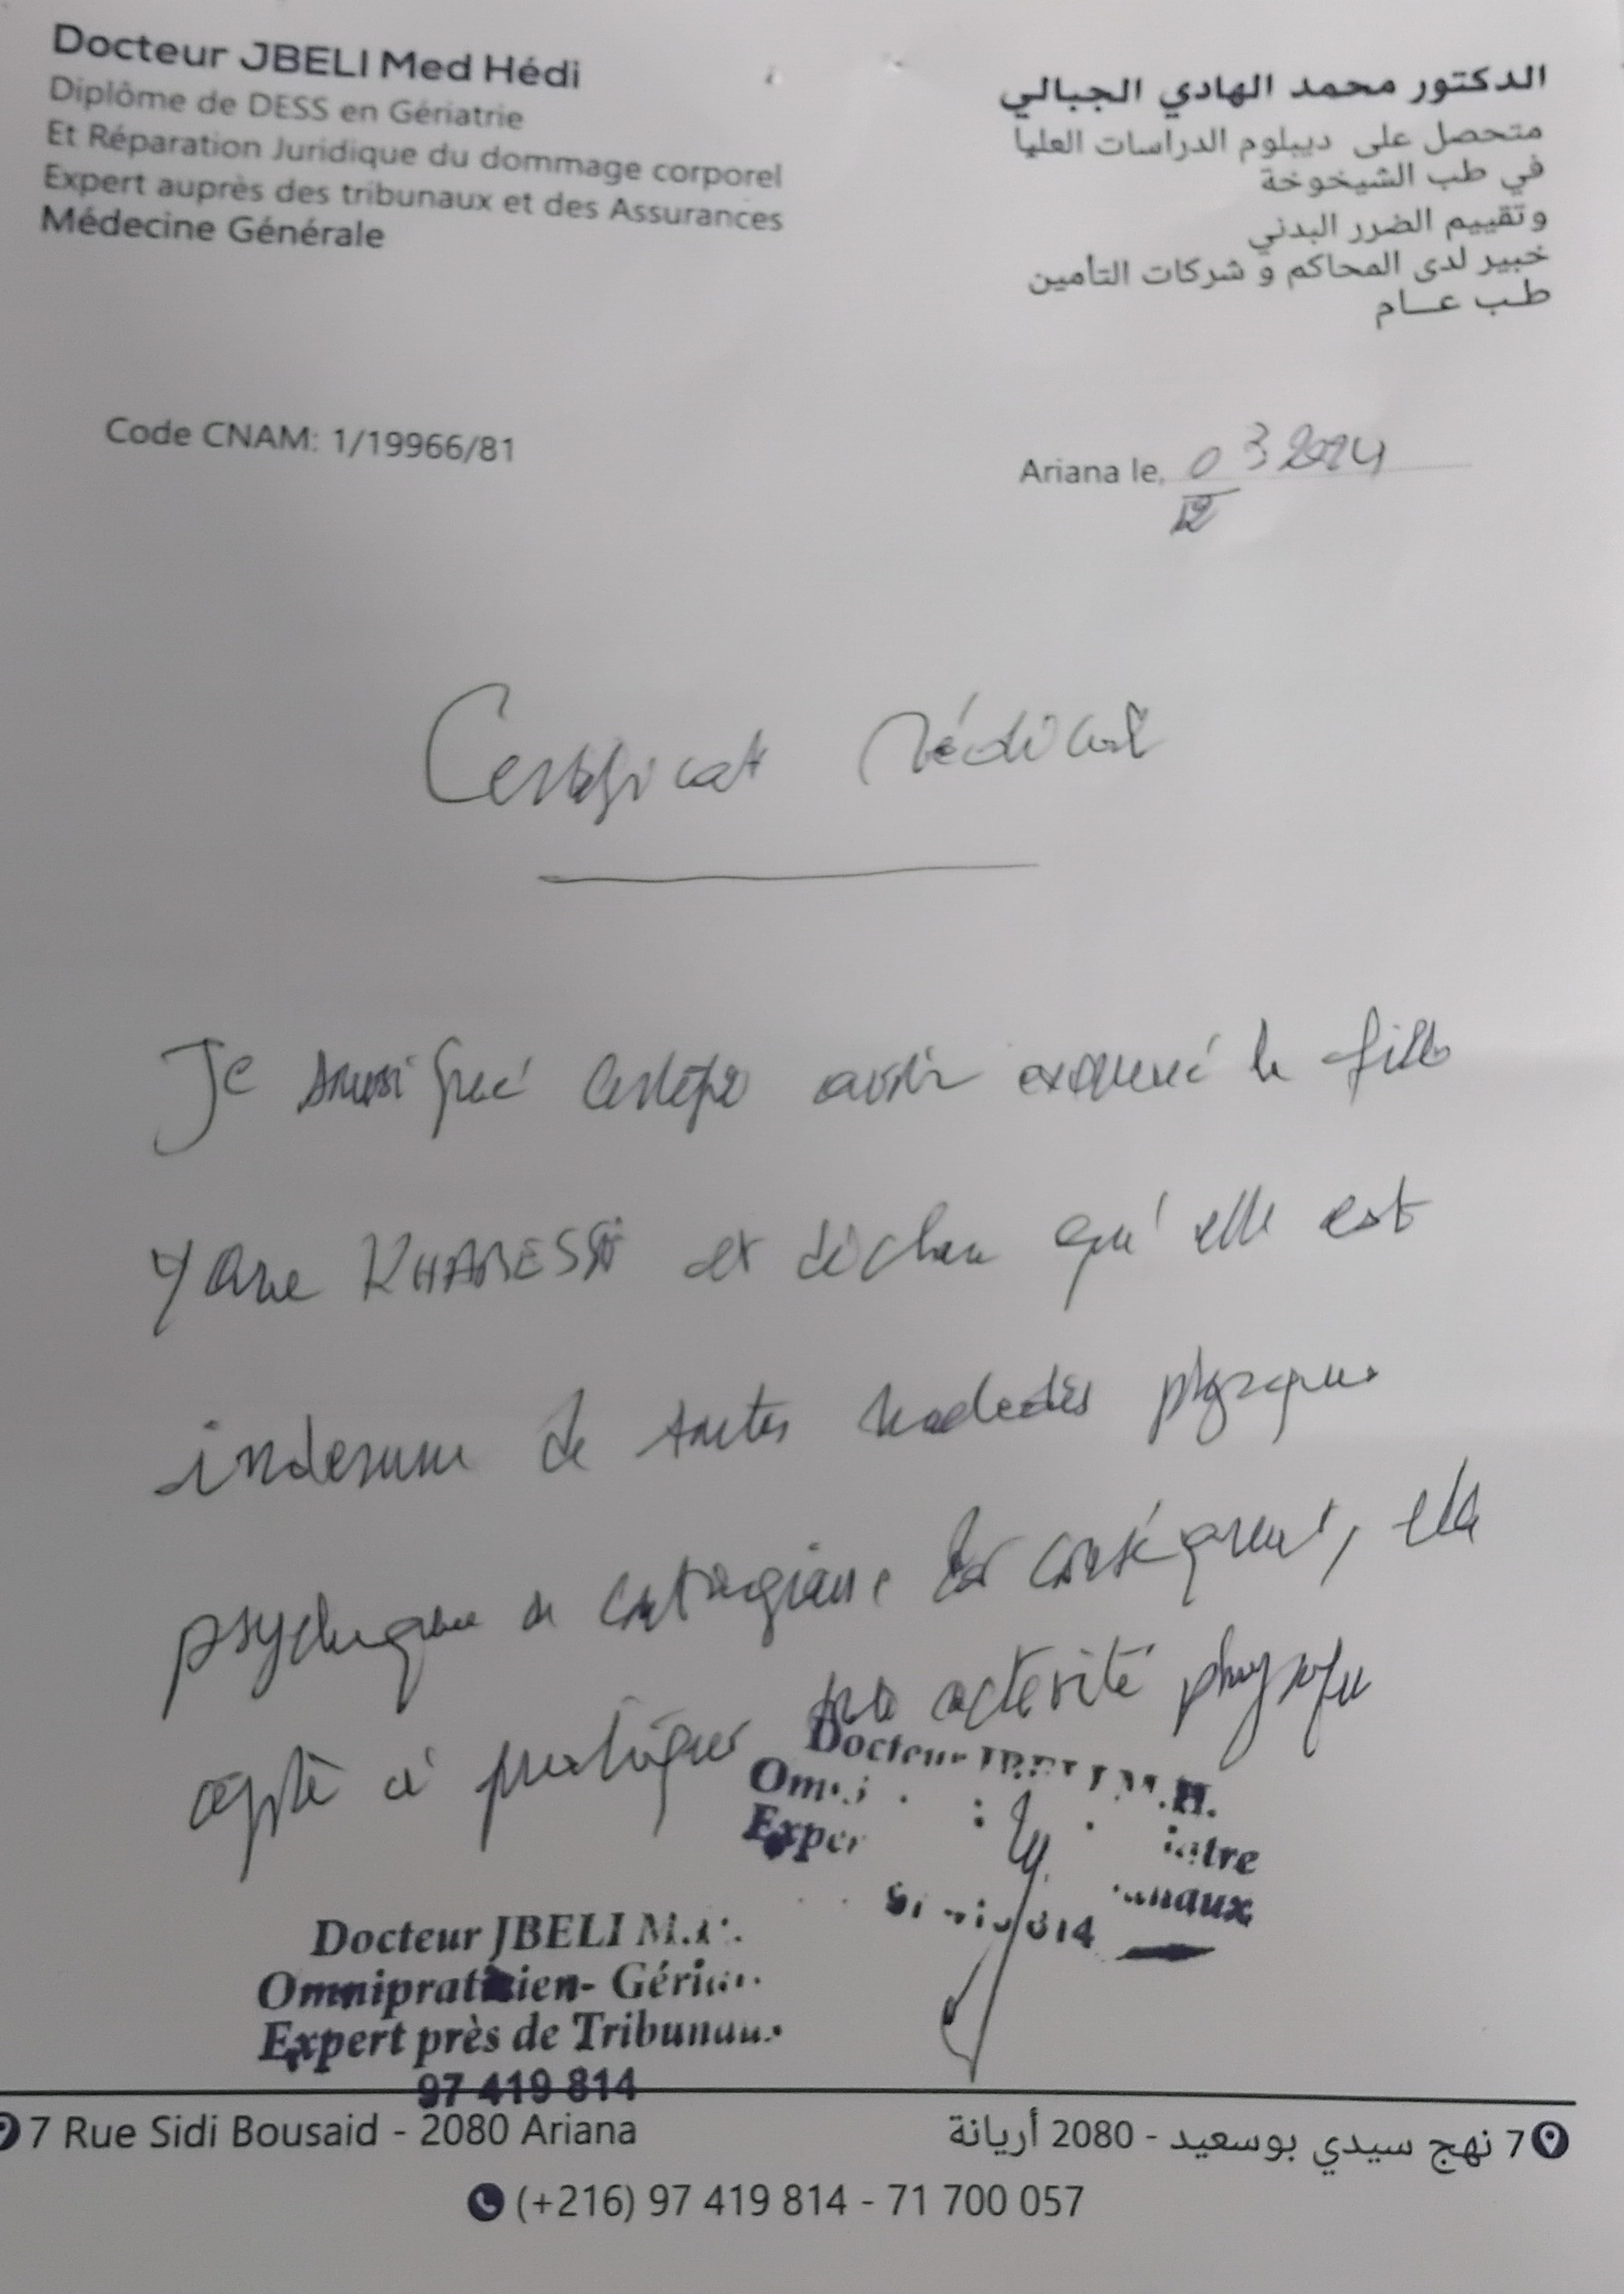 Docteur JBELI Med Hédi
Diplôme de DESS en Gériatrie
Et Réparation Juridique du dommage corporel
Expert auprès des tribunaux et des Assurances
Médecine Générale
الدكتور محمد الهادي الجبالي
متحصل على ديبلوم الدراسات العليا
في طب الشيخوخة
وتقييم الضرر البدني
خبير لدى المحاكم و شركات التأمين
طب عام
Code CNAM: 1/19966/81
Ariana le, 03 2024
12
Certificat Médical
Je soussigné certifie avoir examiné la fille
et déclare qu'elle est
indemne de toutes maladies physique
psychique contagieuse Par conséquent, elle
apte à pratiquer activité physique
Docteur
Docteur JBELI
Omnipraticien-
Expert près de Tribunaux
97 419 814
7 Rue Sidi Bousaid - 2080 Ariana
7 نهج سيدي بوسعيد - 2080 أريانة
(+216) 97 419 814 - 71 700 057